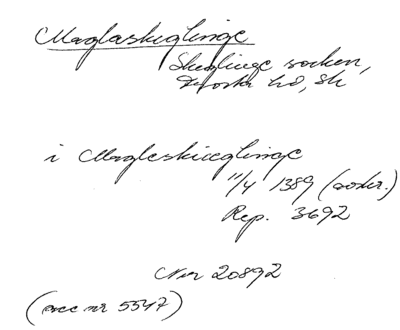 Maglaskiglinge
Skeglinge socken,
Frosta hd, Sk
i Magleskieglinge
11/4 1389 (avskr.)
Rep. 3692
Nr 20892
(acc nr 5547)